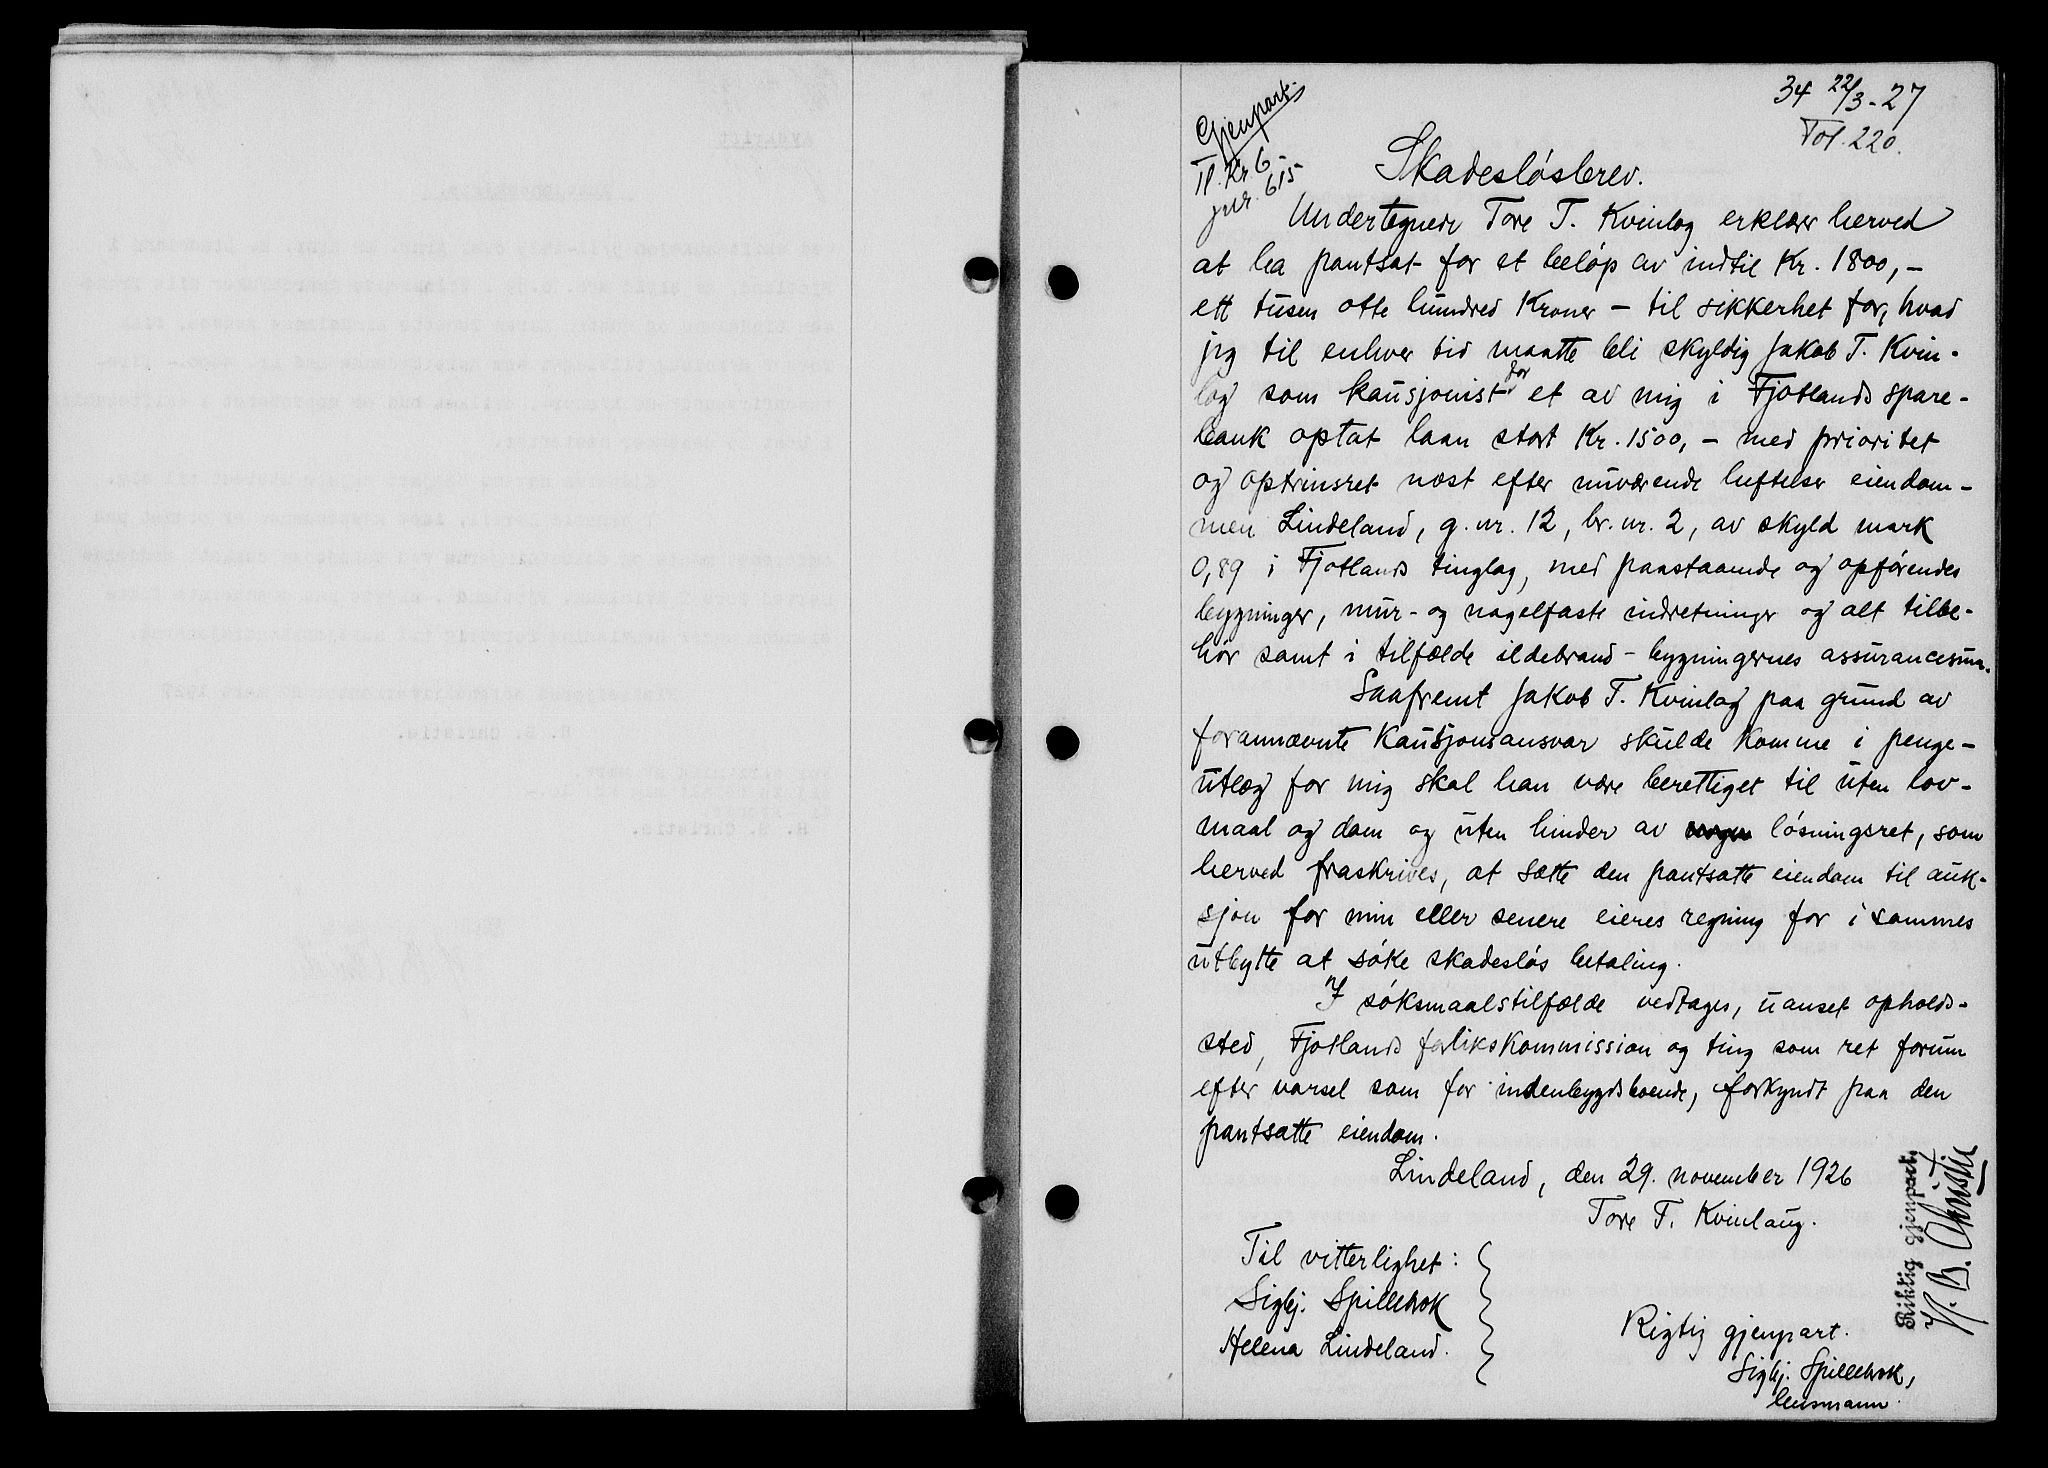 34 22/3-27
Fol. 220.
Gjenpart.
Tl. Kr 6-
jnr. 615-
Skadesløsbrev.
Undertegnede Tore T. Kvinlog erklærer herved
at ha pantsat for et beløp av indtil Kr. 1800,-
ett tusen otte hundred Kroner - til sikkerhet for, hvad
jeg til enhver tid maatte bli skyldig Jakob T. Kvin-
log som kausjonist for et av mig i Fjotlands spare-
bank optat laan stort Kr. 1500,- med prioritet
og optrinsret næst efter nuværende heftelser eiendom-
men Lindeland, g. nr. 12, br. nr. 2, av skyld mark
0,89 i Fjotlands tinglag, med paastaaende og opførendes
bygninger, mur- og nagelfaste indretninger og alt tilbe-
hør samt i tilfælde ildebrand - bygningernes assurancesum.
Saafremt Jakob T. Kvinlog paa grund av
forannævnte Kausjonsansvar skulde komme i penge-
utlæg for mig skal han være berettiget til uten lov-
maal og dom og uten hinder av løsningsret, som
herved fraskrives, at sætte den pantsatte eiendom til auk-
sjon for min eller senere eieres regning for i sammes
utbytte at søke skadesløs betaling.
I søksmaalstilfælde vedtages, uanset opholds-
sted, Fjotlands forlikskommission og ting som ret forum
efter varsel som for indenbygdsboende, forkyndt paa den
pantsatte eiendom.
Lindeland, den 29. november 1926
Tore T. Kvinlaug.
Til vitterlighet:
Sigbj. Spilleholk
Helena Lindeland.
Rigtig gjenpart.
Sigbj. Spilleholk,
lensmann.
Riktig gjenpart.
H. B. Christie